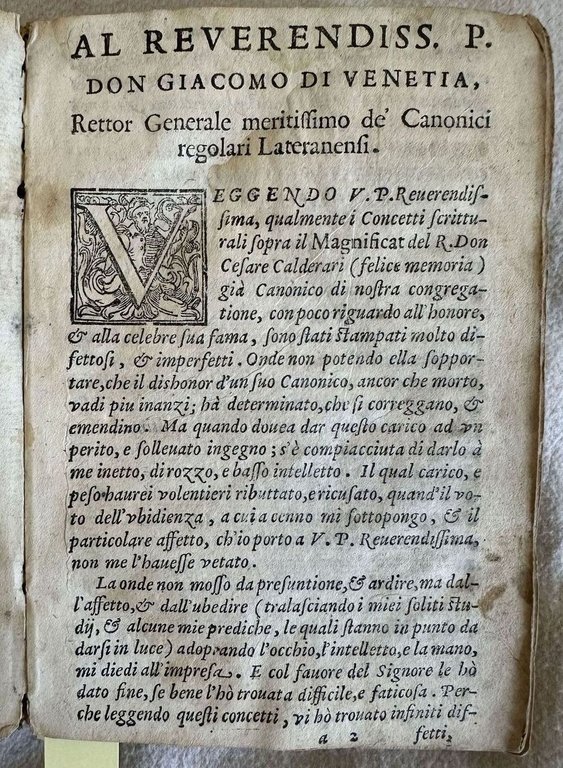 AL REVERENDISS. P.
DON GIACOMO DI VENETIA,
Rettor Generale meritiſſimo de' Canonici
regolari Lateranenſi.
VEGGENDO V. P. Reuerendiſ-
ſima, qualmente i Concetti ſcrittu-
rali ſopra il Magnificat del R. Don
Ceſare Calderari (felice memoria)
già Canonico di noſtra congrega-
tione, con poco riguardo all'honore,
& alla celebre ſua fama, ſono ſtati ſtampati molto di-
fettoſi, & imperfetti. Onde non potendo ella ſoppor-
tare, che il dishonor d'un ſuo Canonico, ancor che morto,
vadi piu inanzi; hà determinato, che ſi correggano, &
emendino. Ma quando douea dar queſto carico ad vn
perito, e ſolleuato ingegno; s'è compiacciuta di darlo à
me inetto, di rozzo, e baſſo intelletto. Il qual carico, e
peſo haurei volentieri ributtato, e ricuſato, quand'il vo-
to dell'vbidienza, a cui a cenno mi ſottopongo, & il
particolare affetto, ch'io porto a V. P. Reuerendiſſima,
non me l'haueſſe vetato.
La onde non moſſo da preſuntione, & ardire, ma dal-
l'affetto, & dall'ubedire (tralaſciando i miei ſoliti ſtu-
dij, & alcune mie prediche, le quali ſtanno in punto da
darſi in luce) adoprando l'occhio, l'intelletto, e la mano,
mi diedi all'impreſa. E col fauore del Signore le hò
dato fine, ſe bene l'hò trouata difficile, e faticoſa. Per-
che leggendo queſti concetti, vi hò trouato infiniti dif-
a 2 fetti,